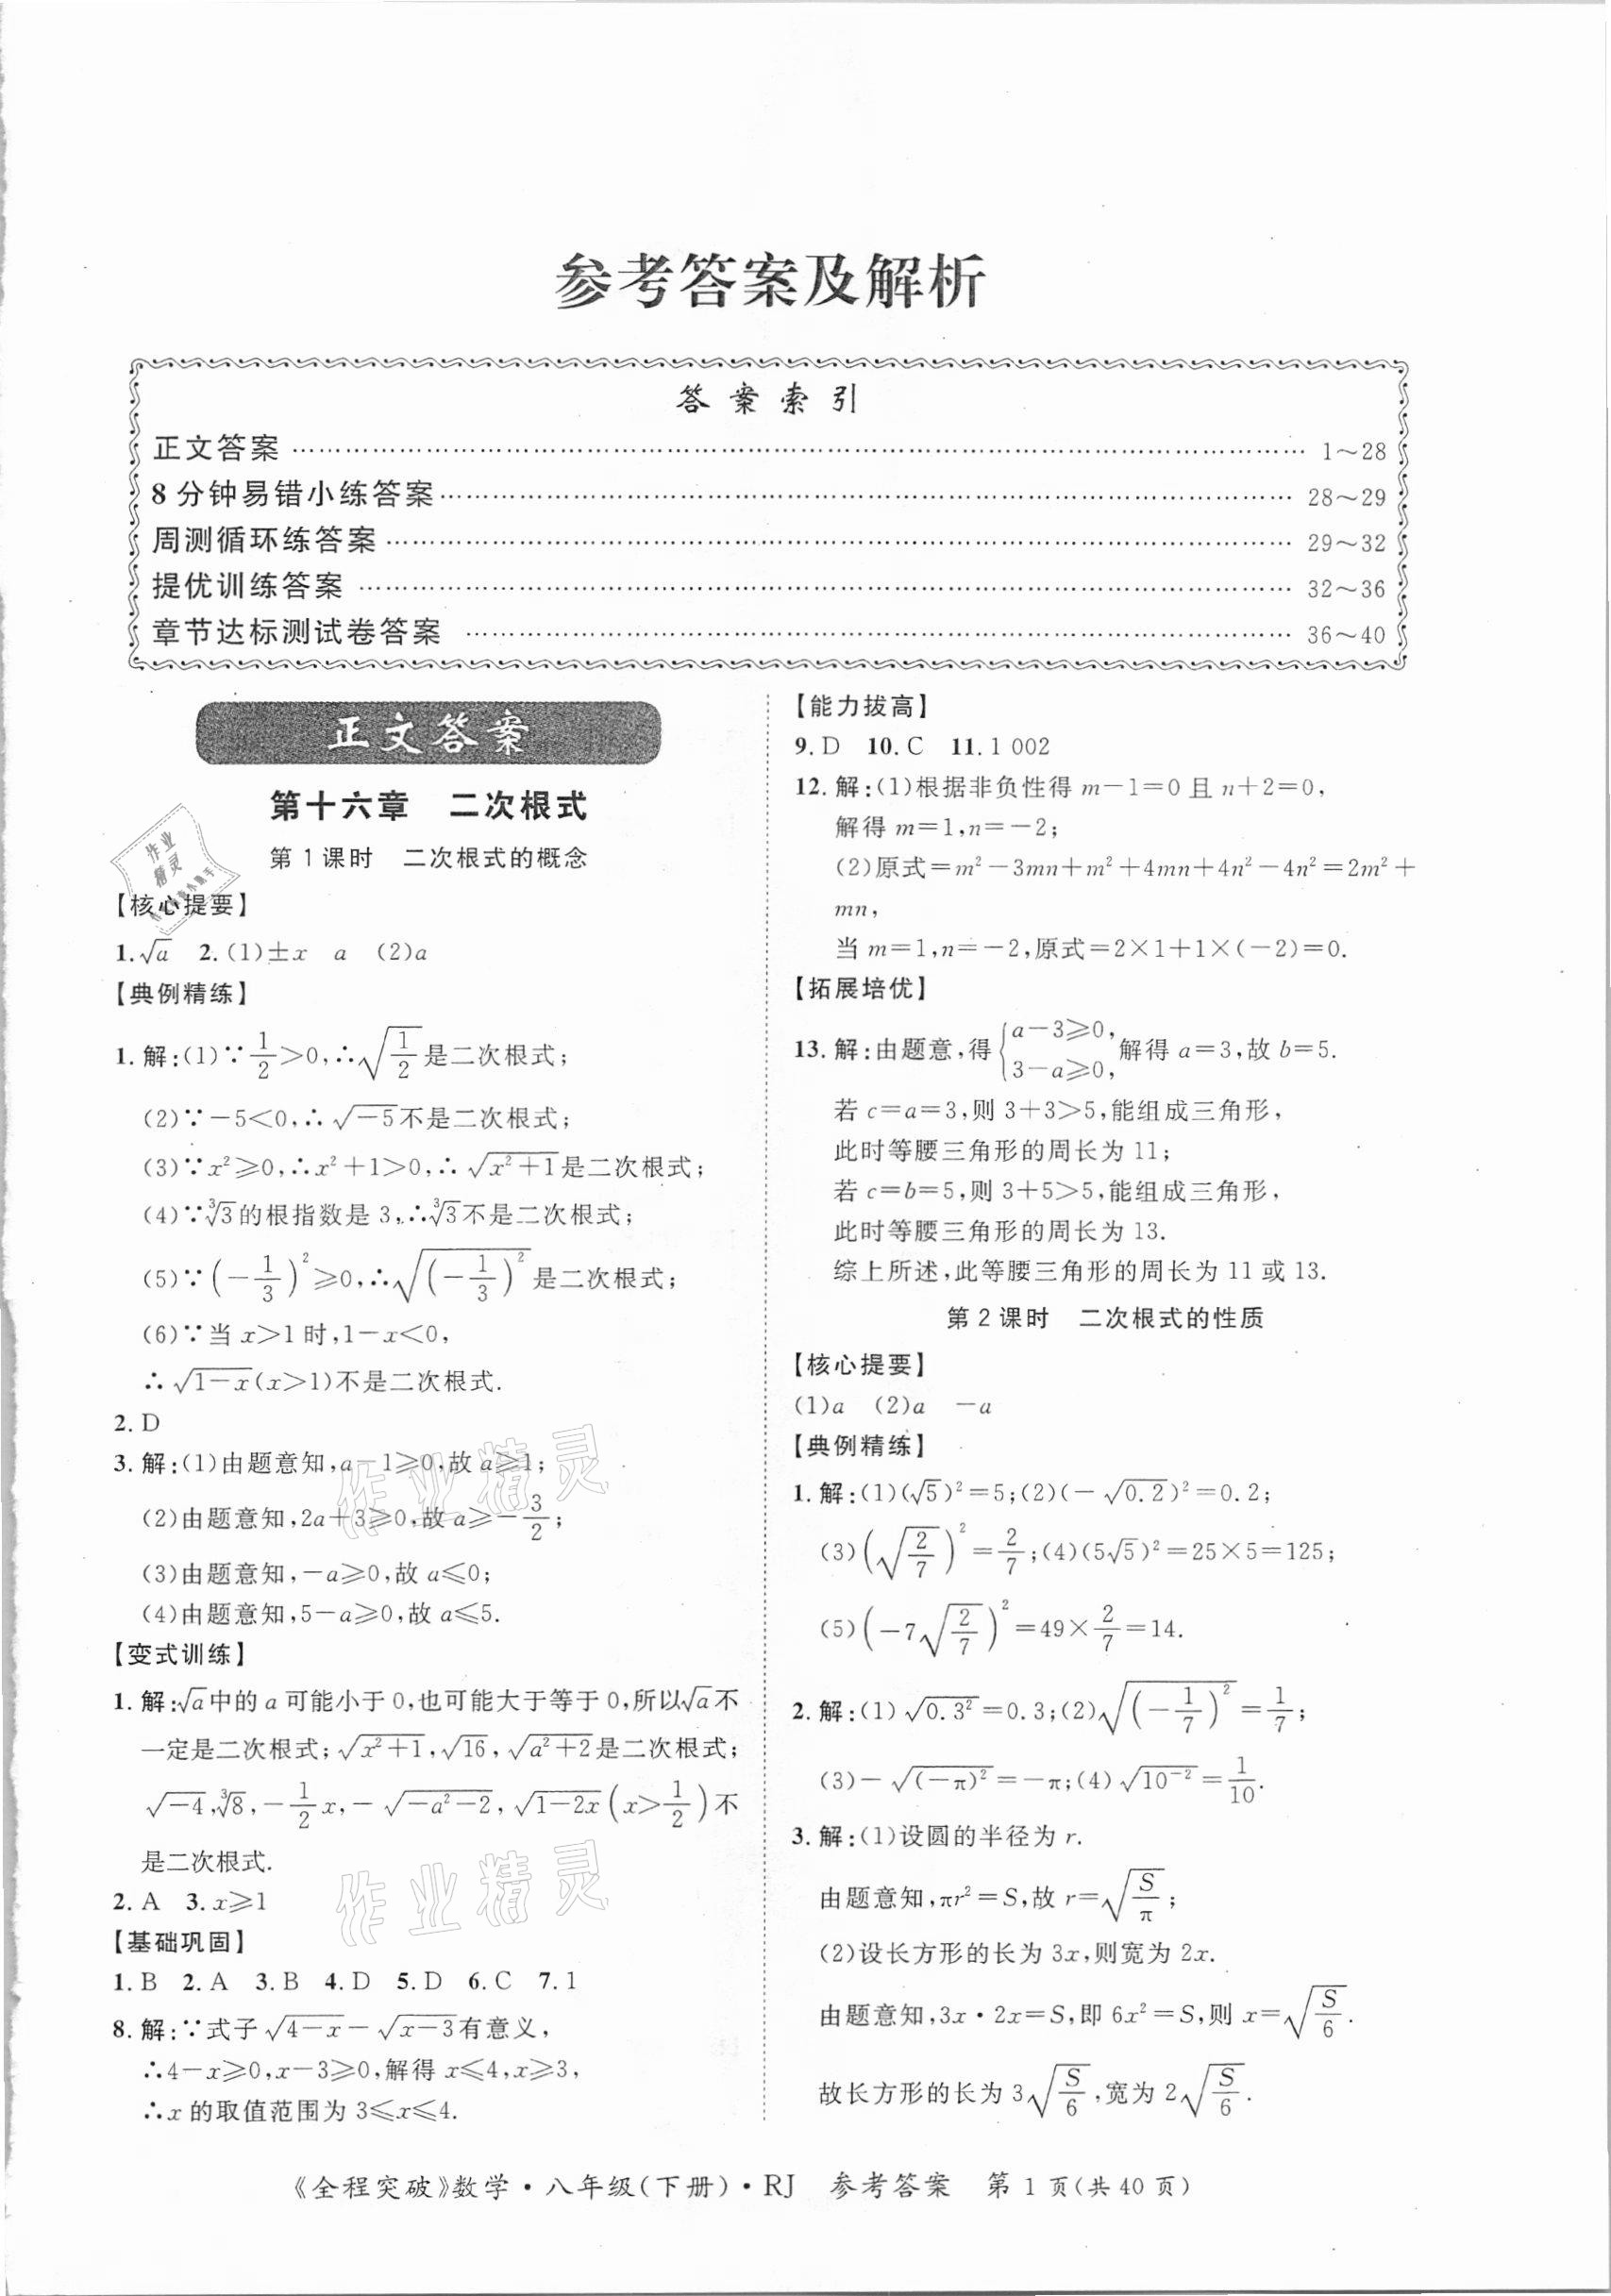 参考答案及解析
答案索引
正文答案 …… 1～28
8分钟易错小练答案 …… 28～29
周测循环练答案 …… 29～32
提优训练答案 …… 32～36
章节达标测试卷答案 …… 36～40
正文答案
第十六章 二次根式
第1课时 二次根式的概念
【核心提要】
1.√a 2.(1)±x a (2)a
【典例精练】
1.解:(1)∵1/2>0,∴√(1/2)是二次根式;
(2)∵-5<0,∴√(-5)不是二次根式;
(3)∵x²≥0,∴x²+1>0,∴√(x²+1)是二次根式;
(4)∵³√3的根指数是3,∴³√3不是二次根式;
(5)∵(-1/3)²≥0,∴√((-1/3)²)是二次根式;
(6)∵当x>1时,1-x<0,
∴√(1-x)(x>1)不是二次根式.
2.D
3.解:(1)由题意知,a-1≥0,故a≥1;
(2)由题意知,2a+3≥0,故a≥-3/2;
(3)由题意知,-a≥0,故a≤0;
(4)由题意知,5-a≥0,故a≤5.
【变式训练】
1.解:√a中的a可能小于0,也可能大于等于0,所以√a不
一定是二次根式;√(x²+1),√16,√(a²+2)是二次根式;
√(-4),³√8,-1/2x,-√(-a²-2),√(1-2x)(x>1/2)不
是二次根式.
2.A 3.x≥1
【基础巩固】
1.B 2.A 3.B 4.D 5.D 6.C 7.1
8.解:∵式子√(4-x)-√(x-3)有意义,
∴4-x≥0,x-3≥0,解得x≤4,x≥3,
∴x的取值范围为3≤x≤4.
【能力拔高】
9.D 10.C 11.1 002
12.解:(1)根据非负性得m-1=0且n+2=0,
解得m=1,n=-2;
(2)原式=m²-3mn+m²+4mn+4n²-4n²=2m²+
mn,
当m=1,n=-2,原式=2×1+1×(-2)=0.
【拓展培优】
13.解:由题意,得{a-3≥0,3-a≥0,解得a=3,故b=5.
若c=a=3,则3+3>5,能组成三角形,
此时等腰三角形的周长为11;
若c=b=5,则3+5>5,能组成三角形,
此时等腰三角形的周长为13.
综上所述,此等腰三角形的周长为11或13.
第2课时 二次根式的性质
【核心提要】
(1)a (2)a -a
【典例精练】
1.解:(1)(√5)²=5;(2)(-√0.2)²=0.2;
(3)(√(2/7))²=2/7;(4)(5√5)²=25×5=125;
(5)(-7√(2/7))²=49×2/7=14.
2.解:(1)√(0.3²)=0.3;(2)√((-1/7)²)=1/7;
(3)-√((-π)²)=-π;(4)√(10⁻²)=1/10.
3.解:(1)设圆的半径为r.
由题意知,πr²=S,故r=√(S/π);
(2)设长方形的长为3x,则宽为2x.
由题意知,3x·2x=S,即6x²=S,则x=√(S/6).
故长方形的长为3√(S/6),宽为2√(S/6).
《全程突破》数学·八年级(下册)·RJ 参考答案 第1页(共40页)
作业精灵
作业精灵
作业精灵